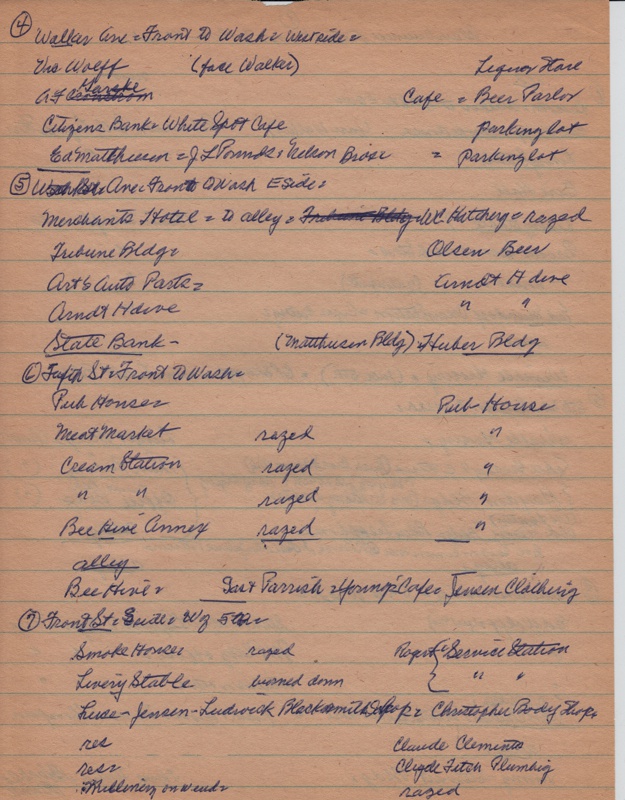 ④ Walker Ave = Front to Wash = Westside =
Vic Wolff (face Walker) Liquor Store
A F Garske Cafe = Beer Parlor
Citizens Bank = White Spot Cafe parking lot
Ed Matthiesen = J L Pounds = Nelson Bros = = Parking lot
⑤ Ave = Front to Wash E Side =
Merchants Hotel = to alley = Tribune Bldg = W.C. Hatchery = razed
Tribune Bldg = Olsen Beer
Art's Auto Parts = Arndt Hdwe
Arndt Hdwe " "
State Bank - (Matthiesen Bldg) = Huber Bldg
⑥ Fifth St = Front to Wash =
Pub House = Pub House
Meat Market razed "
Cream Station razed "
" " razed "
Bee Hive Annex razed "
alley
Bee Hive = & Parrish = Young's Cafe = Jensen Clothing
⑦ Front St = S side = W of 5th =
Smoke House = razed Service Station
Livery Stable burned down " "
Luse - Jensen - Ludwick Blacksmith Shop = Christopher Body Shop =
res Claude Clements
res = Clyde Fitch Plumbing
Millinery on = razed